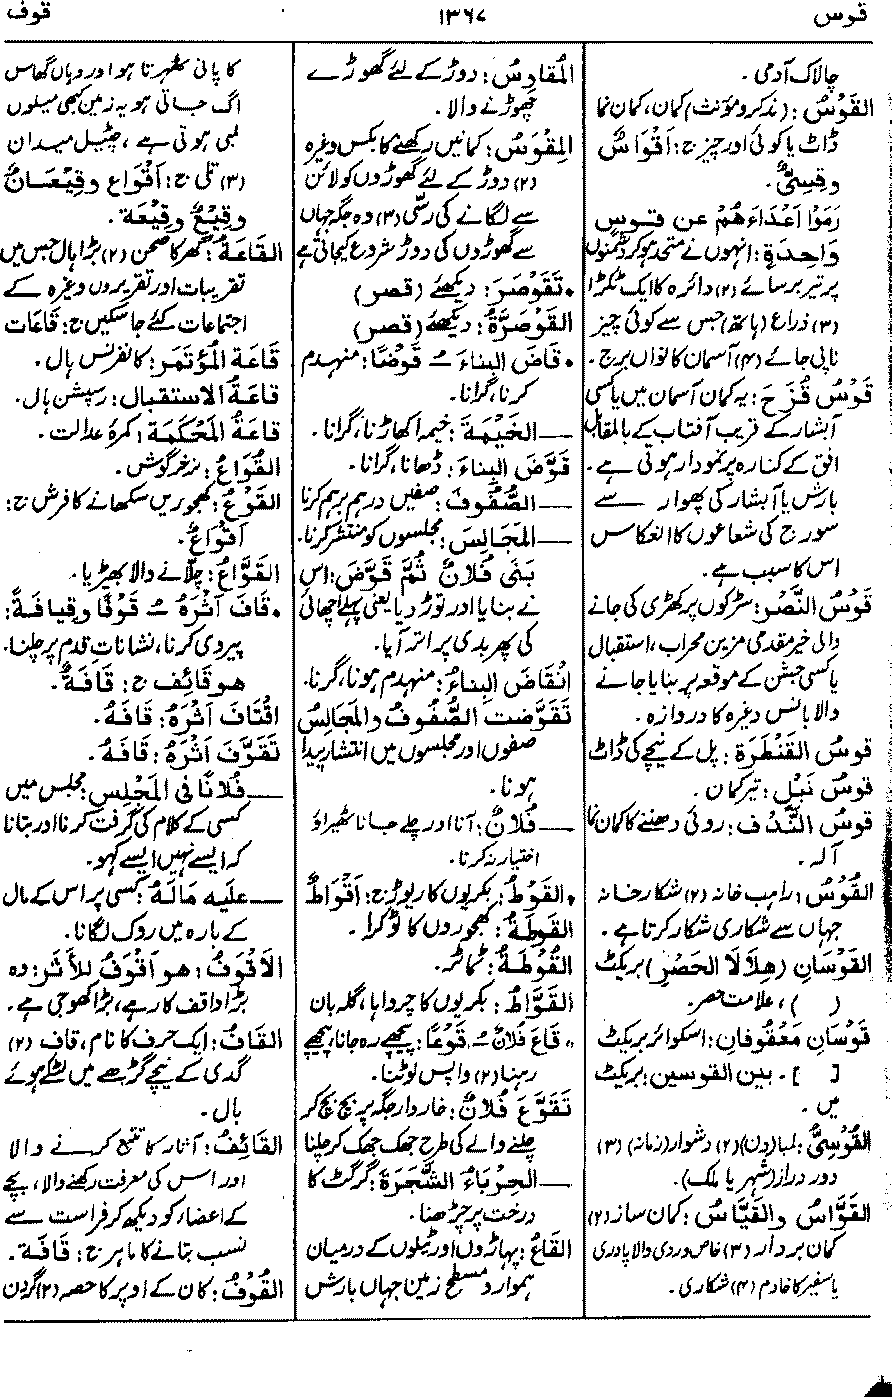 قوس
۱۳۶۷
قوف
چالاک آدمی۔
القَوْسُ: (مذکر و مؤنث) کمان، کمان نما
ڈاٹ یا کوئی اور چیز ج: أَقْوَاسٌ
وقِسِیٌّ۔
رَمَوْا أَعْدَاءَهُمْ عن قوسٍ
وَاحِدَةٍ: انہوں نے متحد ہو کر دشمنوں
پر تیر برسائے (۲) دائرہ کا ایک ٹکڑا
(۳) ذراع (ہاتھ) جس سے کوئی چیز
ناپی جائے (۴) آسمان کا نواں برج۔
قَوْسُ قُزَحَ: یہ کمان آسمان میں یا کسی
آبشار کے قریب آفتاب کے بالمقابل
افق کے کنارہ پر نمودار ہوتی ہے۔
بارش یا آبشار کی پھوار — سے
سورج کی شعاعوں کا انعکاس
اس کا سبب ہے۔
قَوْسُ النَّصْرِ: سڑکوں پر کھڑی کی جانے
والی خیر مقدمی مزین محراب، استقبال
یا کسی جشن کے موقعہ پر بنایا جانے
والا بانس وغیرہ کا دروازہ۔
قوسُ القَنْطَرَة: پل کے نیچے کی ڈاٹ
قوسُ نَبْلٍ: تیر کمان۔
قوسُ النَّدْف: روئی دھننے کا کمان نما
آلہ۔
القُوسُ: راہب خانہ (۲) شکار خانہ
جہاں سے شکاری شکار کرتا ہے۔
القَوْسَانِ (هِلَالَا الحَصْرِ) بریکٹ
( )، علامت حصر۔
قَوْسَانِ مَعْقُوفان: اسکوائر بریکٹ
[ ]۔ بین القوسین: بریکٹ
میں۔
القُوسِیُّ: لمبا (دن) (۲) دشوار (زمانہ) (۳)
دور دراز (شہر یا ملک)۔
القَوَّاسُ والقَيَّاسُ: کمان ساز (۲)
کمان بردار (۳) خاص وردی والا پادری
یا سفیر کا خادم (۴) شکاری۔
المُقَاوِسُ: دوڑ کے لئے گھوڑے
چھوڑنے والا۔
المِقْوَسُ: کمانیں رکھنے کا بکس وغیرہ
(۲) دوڑ کے لئے گھوڑوں کو لائن
سے لگانے کی رسّی (۳) وہ جگہ جہاں
سے گھوڑوں کی دوڑ شروع کیجاتی ہے
• تَقَوْصَرَ: دیکھئے (قصر)
القَوْصَرَّةُ: دیکھئے (قصر)
• قَاضَ البِناءَ ُ قَوْضًا: منہدم
کرنا، گرانا۔
— الخَيْمَةَ: خیمہ اکھاڑنا، گرانا۔
قَوَّضَ البِناءَ: ڈھانا، گرانا۔
— الصُّفُوفَ: صفیں درہم برہم کرنا
— المَجَالِسَ: مجلسوں کو منتشر کرنا۔
بَنٰی فُلَانٌ ثُمَّ قَوَّضَ: اس
نے بنایا اور توڑ دیا یعنی پہلے اچھائی
کی پھر بدی پر اتر آیا۔
انْقَاضَ البِناءُ: منہدم ہونا، گرنا۔
تَقَوَّضَت الصُّفُوفُ والمَجَالِسُ
صفوں اور مجلسوں میں انتشار پیدا
ہونا۔
— فُلَانٌ: آنا اور چلے جانا ٹھہراؤ
اختیار نہ کرنا۔
• القَوْطُ: بکریوں کا ریوڑ ج: أَقْوَاطٌ
القَوْطَةُ: کھجوروں کا ٹوکرا۔
القُوطَةُ: ٹماٹر۔
القَوَّاطُ: بکریوں کا چرواہا، گلہ بان
• قَاعَ فُلَانٌ ُ قَوْعًا: پیچھے رہ جانا، پیچھے
رہنا (۲) واپس لوٹنا۔
تَقَوَّعَ فُلَانٌ: خار دار جگہ پر بچ بچ کر
چلنے والے کی طرح جھک جھک کر چلنا
— الحِرْبَاءُ الشَّجَرَةَ: گرگٹ کا
درخت پر چڑھنا۔
القَاعُ: پہاڑوں اور ٹیلوں کے درمیان
ہموار و مسطح زمین جہاں بارش
کا پانی ٹھہرتا ہو اور وہاں گھاس
اگ جاتی ہو یہ زمین کبھی میلوں
لمبی ہوتی ہے، چٹیل میدان
(۳) تلی ج: أَقْوَاع وقِيْعَانٌ
وقِيْعٌ وقِيْعَة۔
القَاعَةُ: گھر کا صحن (۲) بڑا ہال جس میں
تقریبات اور تقریروں وغیرہ کے
اجتماعات کئے جا سکیں ج: قَاعَات
قَاعَة المُؤْتَمَرِ: کانفرنس ہال۔
قاعَةُ الاستقبال: رسپشن ہال۔
قاعَةُ المَحْكَمَة: کمرۂ عدالت۔
القُوَاعُ: نر خرگوش۔
القَوْعُ: کھجوریں سکھانے کا فرش ج:
أَقْوَاعٌ۔
القَوَّاعُ: چلّانے والا بھیڑیا۔
• قَافَ أَثْرَهُ ُ قَوْفًا وقِيافَةً:
پیروی کرنا، نشانات قدم پر چلنا،
هو قائف ج: قَافَةٌ۔
اقْتَافَ أَثْرَهُ: قَافَهُ۔
تَقَوَّفَ أَثْرَهُ: قَافَهُ۔
— فُلَانًا فی المَجْلِسِ: مجلس میں
کسی کے کلام کی گرفت کرنا اور بتانا
کہ ایسے نہیں ایسے کہو۔
— علیه مَالَهُ: کسی پر اس کے مال
کے بارہ میں روک لگانا۔
الأَقْوَفُ: هو أَقْوَفُ للأَثَر: وہ
بڑا واقف کار ہے، بڑا کھوجی ہے۔
القَافُ: ایک حرف کا نام، قاف (۲)
گدی کے نیچے گڑھے میں لٹکے ہوئے
بال۔
القَائِفُ: آثار کا تتبع کرنے والا
اور اس کی معرفت رکھنے والا، بچے
کے اعضاء کو دیکھ کر فراست سے
نسب بتانے کا ماہر ج: قَافَة۔
القُوْفُ: کان کے اوپر کا حصہ (۲) گردن